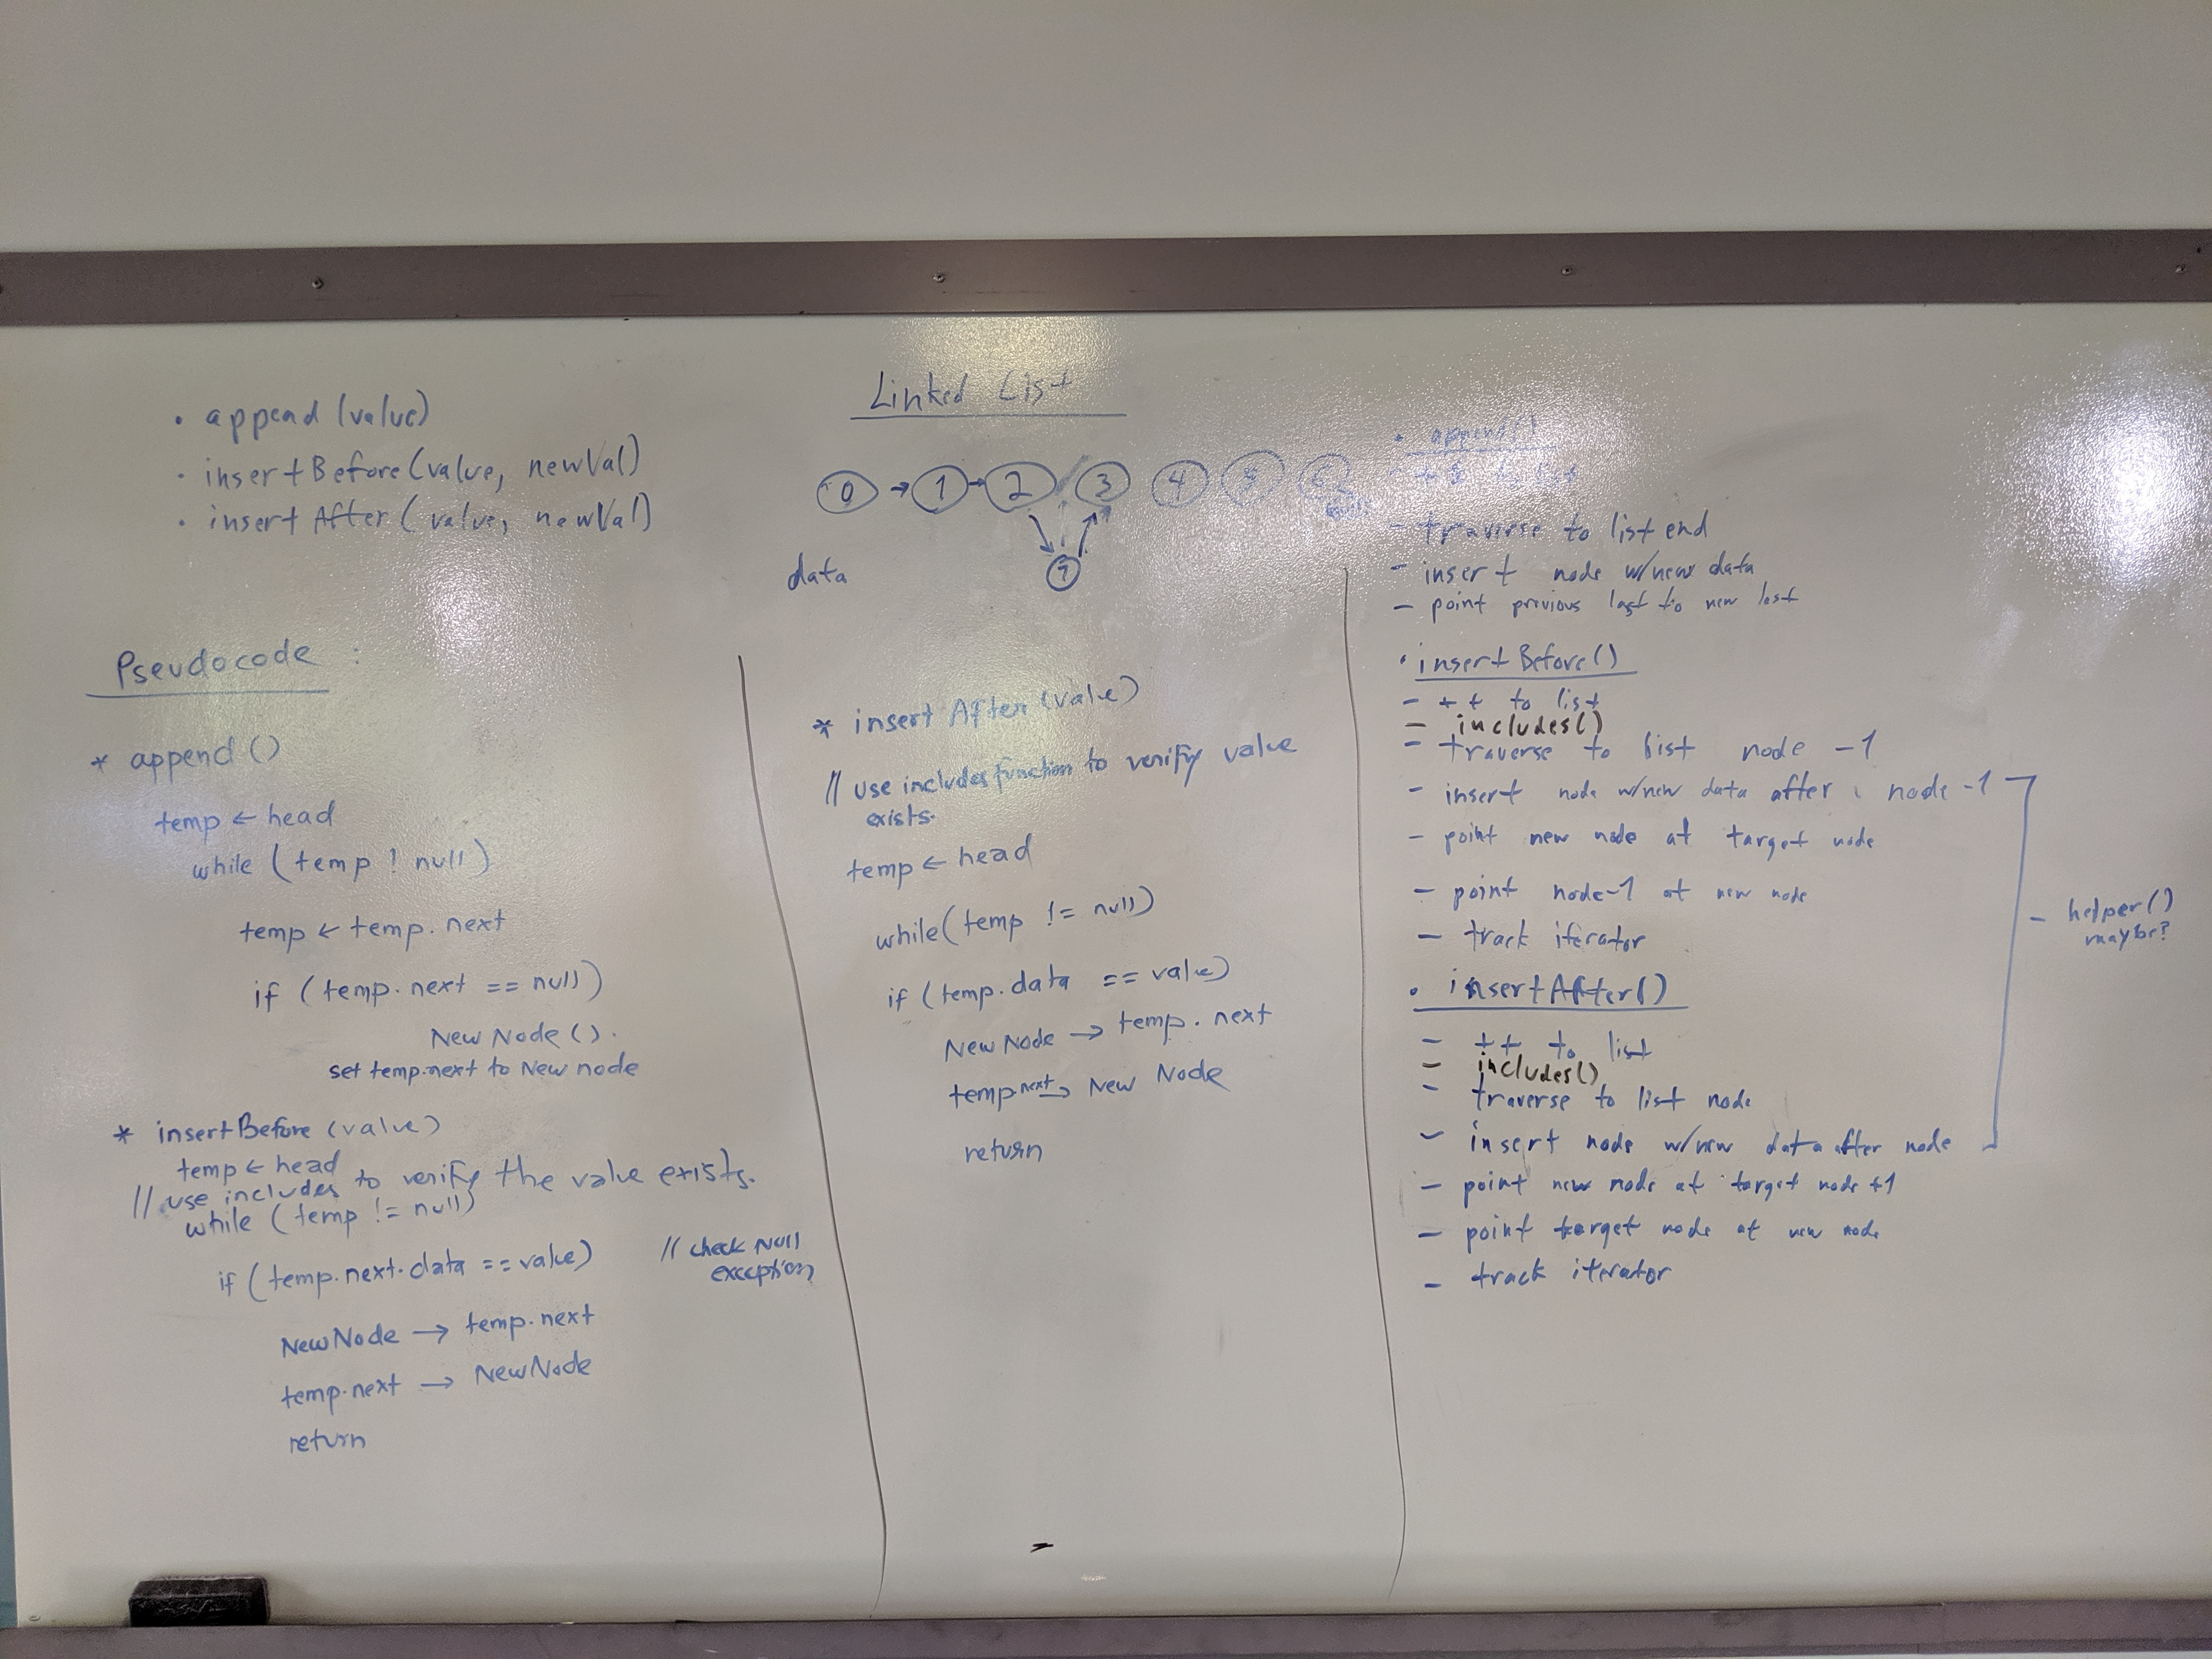 Linked List
• append (value)
• insertBefore (value, newVal)
• insertAfter (value, newVal)
0 → 1 → 2 3 4 5
7
data
Pseudocode :
* append ()
temp ← head
while (temp ! null)
temp ← temp.next
if (temp.next == null)
New Node ().
set temp.next to New node
* insertBefore (value)
temp ← head
// use includes to verify the value exists.
while (temp != null)
if (temp.next.data == value) // check Null
exception
NewNode → temp.next
temp.next → NewNode
return
* insert After (value)
// use includes function to verify value
exists.
temp ← head
while (temp != null)
if (temp.data == value)
New Node → temp.next
temp.next → New Node
return
• append()
to list
- traverse to list end
- insert node w/new data
- point previous last to new last
• insertBefore()
- ++ to list
- includes()
- traverse to list node -1
- insert node w/new data after node -1
- point new node at target node
- point node-1 at new node
- track iterator
- helper()
maybe?
• insertAfter()
- ++ to list
- includes()
- traverse to list node
- insert node w/new data after node
- point new node at target node +1
- point target node at new node
- track iterator